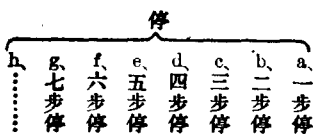 停
a、一步停
b、二步停
c、三步停
d、四步停
e、五步停
f、六步停
g、七步停
h、…………